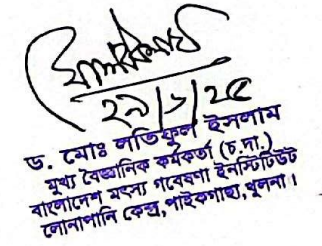 ২৯/১/২৫
ড. মোঃ লতিফুল ইসলাম
মুখ্য বৈজ্ঞানিক কর্মকর্তা (চ.দা.)
বাংলাদেশ মৎস্য গবেষণা ইনস্টিটিউট
লোনাপানি কেন্দ্র, পাইকগাছা, খুলনা।